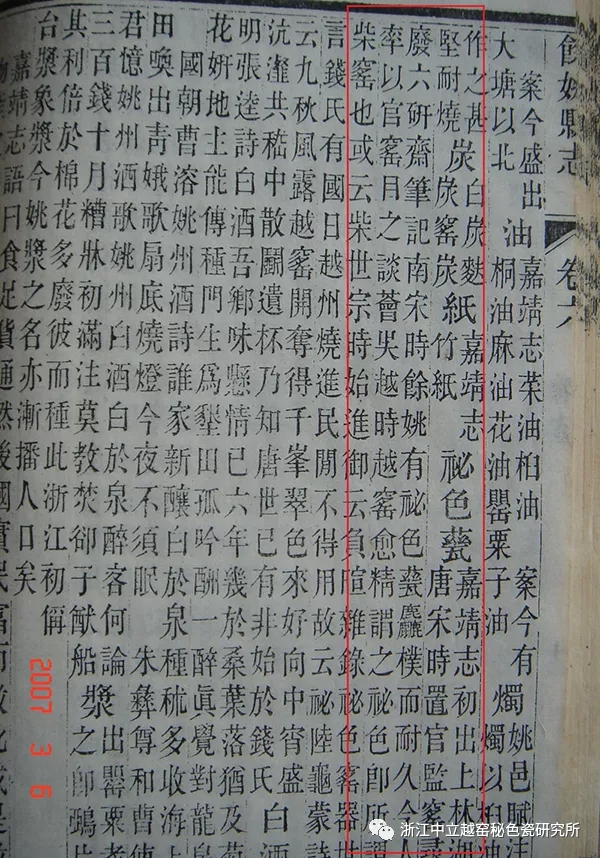 餘姚縣志 卷六
案今盛出 油 嘉靖志菜油桕油 案今有 燭 姚邑賦
大塘以北 桐油麻油花油罌粟子油 燭以桕油
作之甚 炭 白炭麩 紙 嘉靖志 祕色甆 嘉靖志初出上林湖
堅耐燒 炭窰炭 竹紙 唐宋時置官監窰尋
廢六硏齋筆記南宋時餘姚有祕色甆麤樸而耐久今人
率以官窰目之談薈吳越時越窰愈精謂之祕色卽所謂
柴窰也或云柴世宗時始進御云負暄雜錄祕色窰器世
言錢氏有國日越州燒進民閒不得用故云祕陸龜蒙詩
云九秋風露越窰開奪得千峯翠色來好向中宵盛
沆瀣共嵇中散鬭遺杯乃知唐世已有非始於錢氏 白酒
明張逵詩白酒吾鄉味懸情已六年幾於桑葉落猶及菊
花姸地主能傳種門生爲墾田孤吟酬一醉眞覺對龍泉
國朝曹溶姚州酒詩誰家新釀白於泉種秫多收海上
田喚出靑娥歌扇底燒燈今夜不須眠 朱彝尊和曹使
君憶姚州酒歌姚州白酒白於泉醉客何論
三百錢十月糟牀初滿注莫教焚卻子猷船 漿 出罌粟
之卽鴉片
其利倍於棉花多廢彼而種此浙江初偁
台漿象漿今姚漿之名亦漸播人口矣
嘉靖志語曰食足貨通然後國實民富而敎化成是
2007 3 6
浙江中立越窑秘色瓷研究所